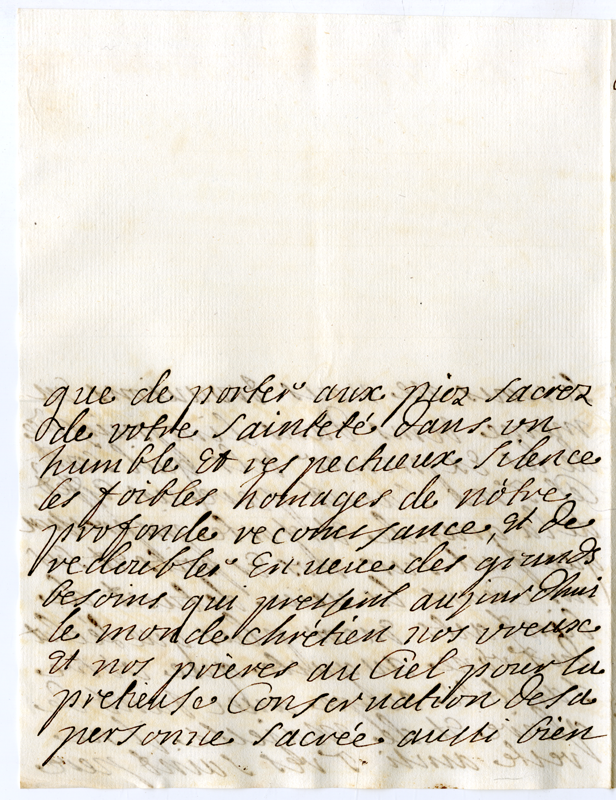 que de porter aux piez sacrez
de votre Sainteté dans un
humble et respectueux silence
les foibles homages de nôtre
profonde reconissance, et de
redoubler En veue des grands
besoins qui pressent aujourdhui
le monde chrétien nos vœux
et nos prières au Ciel pour la
pretieuse Conservation desa
personne sacrée aussi bien